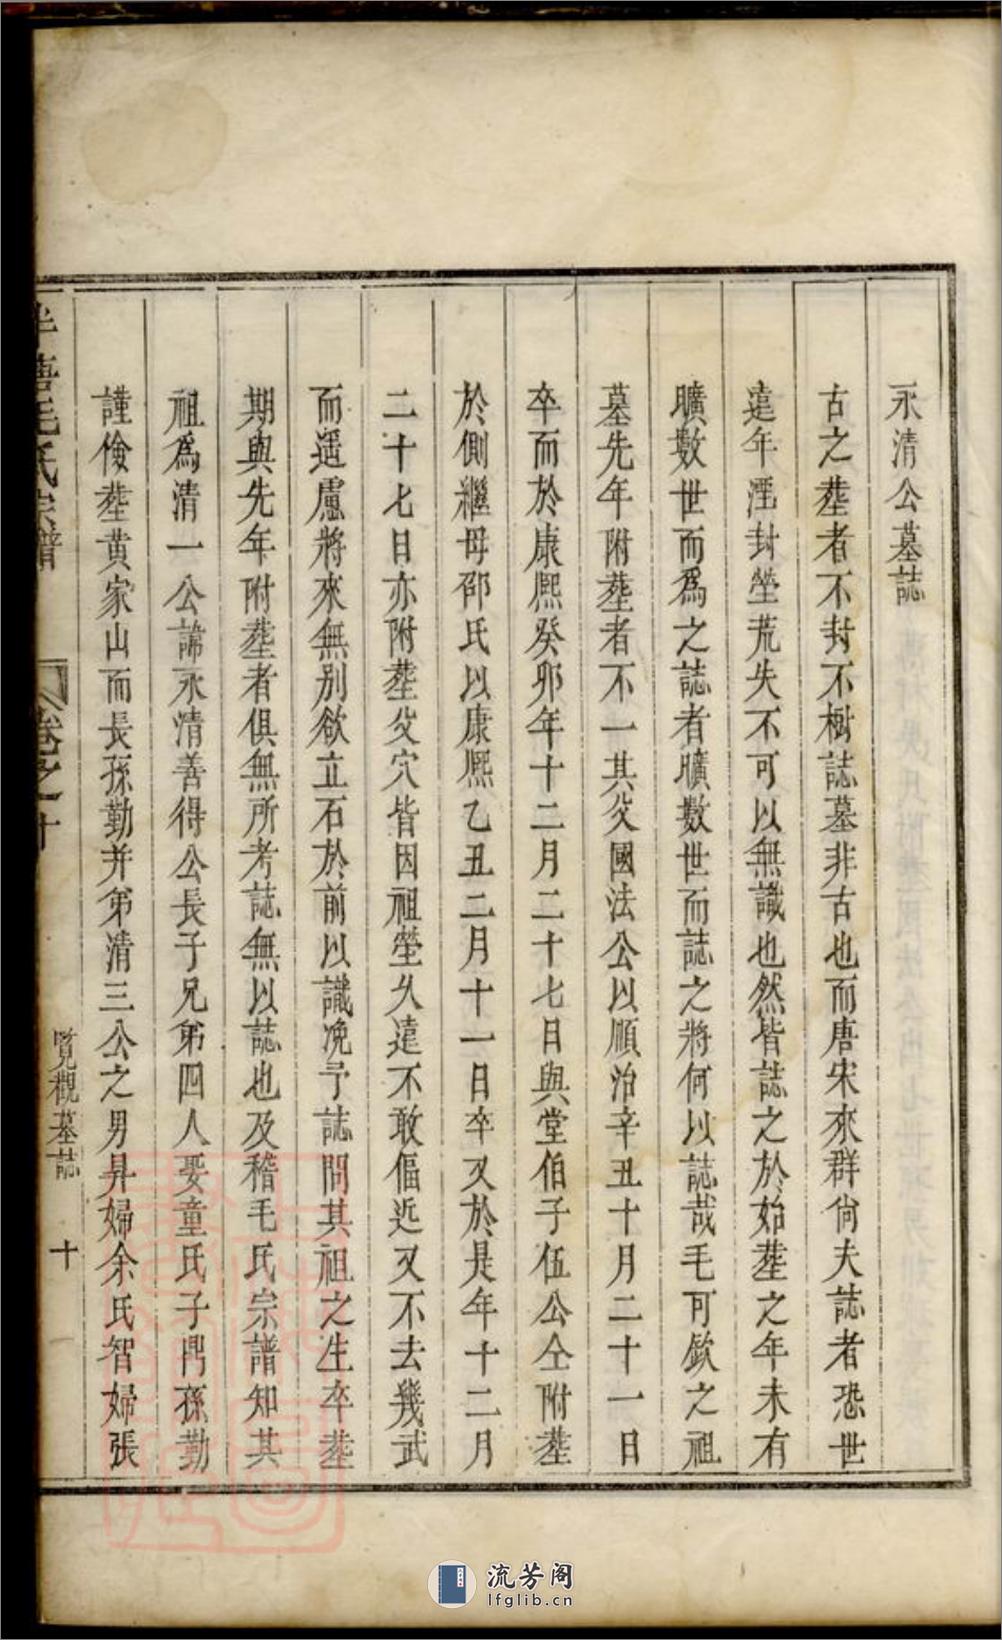 永清公墓誌
古之塟者不封不樹誌墓非古也而唐宋來群尙夫誌者恐世
遠年湮封塋荒失不可以無識也然皆誌之於始塟之年未有
曠數世而爲之誌者曠數世而誌之將何以誌哉毛可欽之祖
墓先年附塟者不一其父國法公以順治辛丑十月二十一日
卒而於康熙癸卯年十二月二十七日與堂伯子伍公仝附塟
於側繼母邵氏以康熙乙丑二月十一日卒又於是年十二月
二十七日亦附塟父穴皆因祖塋久遠不敢傴近又不去幾武
而遥慮將來無別欲立石於前以識凂予誌問其祖之生卒塟
期與先年附塟者俱無所考誌無以誌也及稽毛氏宗譜知其
祖爲清一公諱永清善得公長子兄第四人娶童氏子鬥孫勤
謹儉塟黄家山而長孫勤并弟清三公之男昇婦余氏智婦張
毛氏宗譜
卷之十
覽觀墓誌
十
流芳阁
lfglib.cn